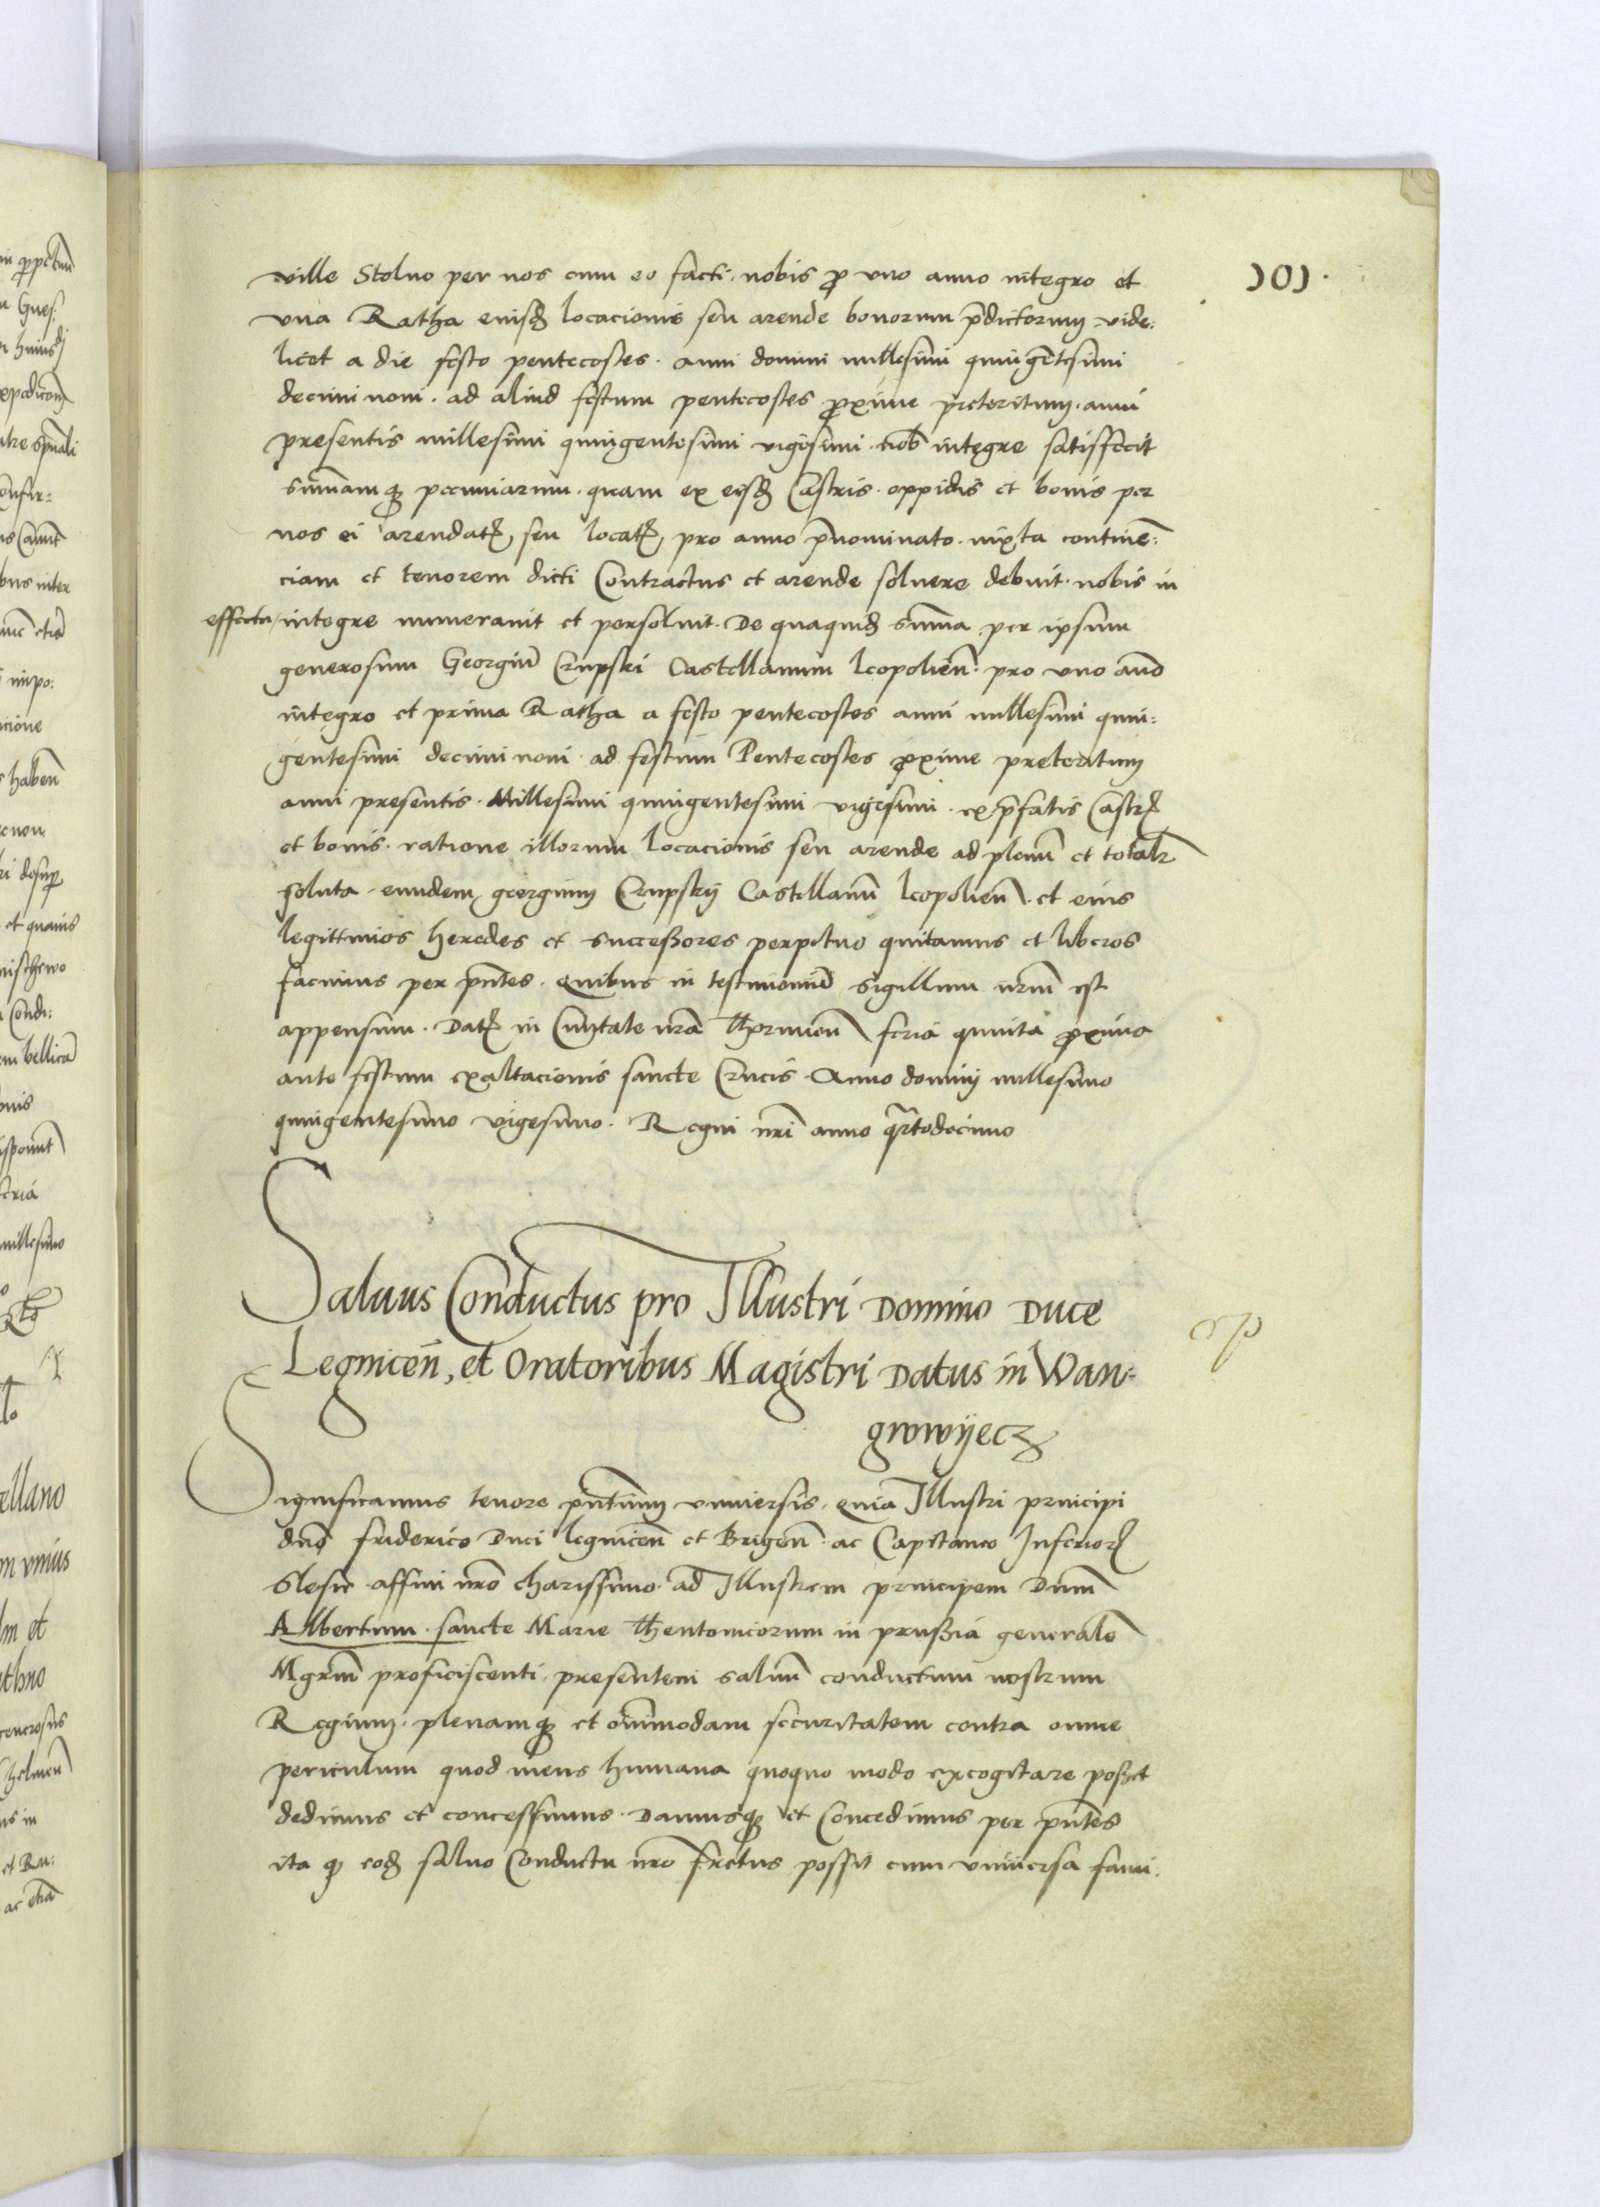 101.
ville Stolno per nos cum eo facti. nobis ꝓ vno anno integro et
vna Ratha eiusꝺ locacionis seu arende bonorum p̄dictorum. vide:
licet a die festo pentecostes. anni domini millesimi quingētesimi
decimi noni. ad aliud festum pentecostes ꝓxime preteritum. anni
presentis millesimi quingentesimi vigesimi. nob̄ integre satisffecit
sūmamqꝫ pecuniarum. quam ex eisꝺ Castris. oppidis et bonis per
nos ei arendatꝭ, seu locatꝭ, pro anno p̄nominato. iuxta continē:
ciam et tenorem dicti Contractus et arende soluere debuit. nobis in
effectu / integre numerauit et persoluit. De quaquidꝫ sūma per ipsum
generosum Georgiū Crupski Castellanum leopolien̄. pro vno anō
integro et prima Ratha a festo pentecostes anni millesimi quin:
gentesimi decimi noni. ad festum Pentecostes ꝓxime preteritum
anni presentis. Millesimi quingentesimi vigesimi. ex p̄fatis Castrꝭ
et bonis. ratione illorum locacionis seu arende ad plenū et totalr̄
soluta. eundem georgium Crupskij Castellanū leopolien̄. et eius
legittimos heredes et successores perpetuo quitamus et liberos
facimus per pn̄tes. Quibus in testimoniū sigillum nr̄m est
appensum. Datꝭ in Ciuitate nr̄a Thorunien̄ feria quinta ꝓxima
ante festum exaltacionis sancte Crucis. Anno dominij millesimo
quingentesimo vigesimo. Regni nr̄i anno q̄rtodecimo
Saluus Conductus pro Illustri Domino Duce
Legnicen̄, et Oratoribus Magistri Datus in Wan=
growijecz
Significamus tenore pn̄tium vniuersis. quia Illustri principi
dn̄o friderico Duci legnicen̄ et Brigen̄. ac Capitaneo Inferiorꝭ
Slesie. affini nr̄o charissimo. ad Illustrem principem Dn̄m
Albertum. sancte Marie Thentonicorum in prussia generalē
Mgr̄m proficiscenti. presentem saluū conductum nostrum
Regium. plenamqꝫ et om̄imodam securitatem contra omne
periculum quod mens humana quoquo modo excogitare posset
dedimus et concessimus. Damusqꝫ et Concedimus per pn̄tes
ita qꝫ eodꝫ saluo Conductu nr̄o fretus possit cum vniuersa fami: